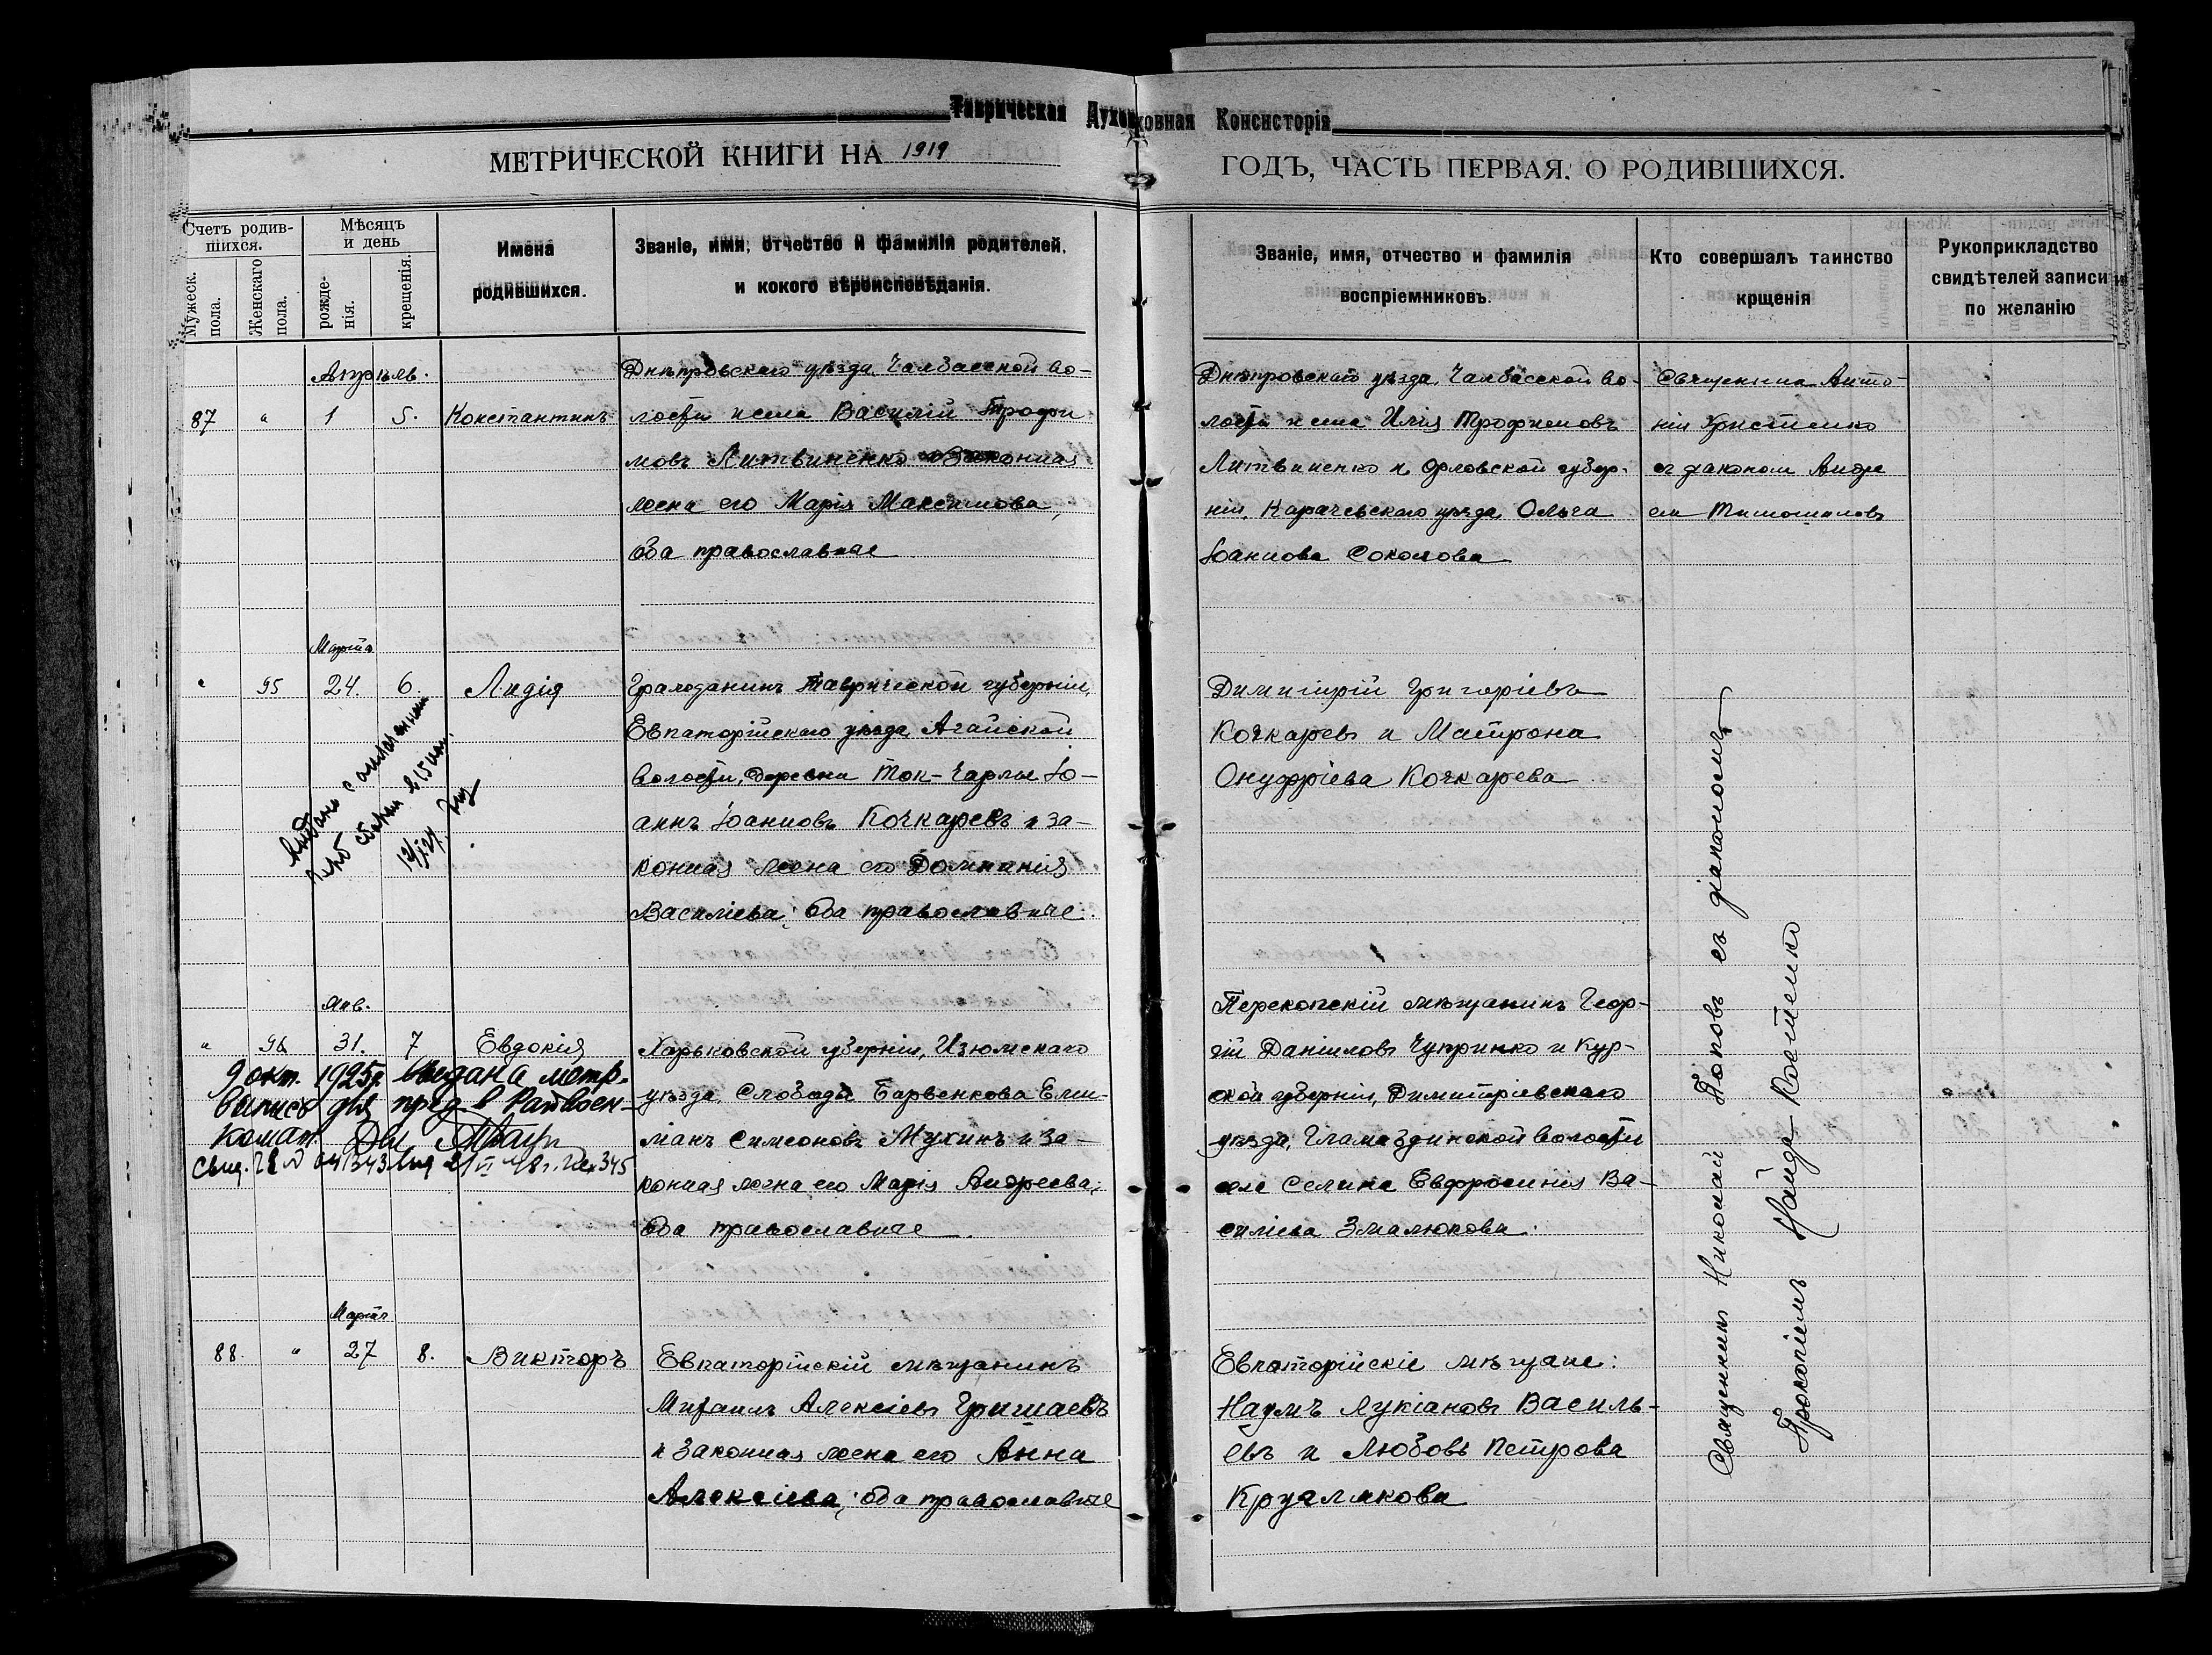 Таврическая Духовная Консисторія
МЕТРИЧЕСКОЙ КНИГИ НА 1919 ГОДЪ, ЧАСТЬ ПЕРВАЯ, О РОДИВШИХСЯ.
Счетъ родив-
шихся.
Мужеск.
пола.
Женскаго
пола.
Мѣсяцъ
и день
рожде-
нія.
крещенія.
Имена
родившихся.
Званіе, имя, отчество и фамилія родителей,
и кокого вѣроисповѣданія.
Званіе, имя, отчество и фамилія
воспріемниковъ.
Кто совершалъ таинство
крщенія
Рукоприкладство
свидѣтелей записи
по желанію
Апрѣль.
87 " 1 5. Константинъ
Днѣпровскаго уѣзда, Чалбасской во-
лости и села Василій Трофи
мовъ Литвиненко и законная
жена его Марія Максимова,
оба православные
Днѣпровскаго уѣзда, Чалбасской во-
лости и села Илія Трофимовъ
Литвиненко и Орловской губер-
ніи, Карачевскаго уѣзда, Ольга
Іоаннова Соколова
Священник Анто-
ній Христенко
съ діакономъ Андре
ем
Марта
" 95 24. 6. Лидія
Гражданинъ Таврической губерніи,
Евпаторійскаго уѣзда, Агайской
волости, деревни Топ-Чарлы Іо-
аннъ Іоанновъ Кочкаревъ и за-
конная жена его Домникія
Василіева, оба православные.
Димитрій Григоріевъ
Кочкаревъ и Матрона
Онуфріева Кочкарева
12/I 24.
Янв.
" 96 31. 7 Евдокія
Харьковской губерніи, Изюмскаго
уѣзда, Слободы Барвенкова Еми-
ліанъ Симеоновъ Мухинъ и за-
конная жена его Марія Андреева,
оба православные.
Перекопскій мѣщанинъ Геор-
гій Даніиловъ Чупринко и Кур-
ской губерніи, Димитріевскаго
уѣзда, Гламаздинской волости
села Селина Евфросинія Ва-
силіева Змалюкова.
9 окт. 1925 г. выдана метр.
выпись для пред. в Райвоен-
комат.
Марта
88. " 27 8. Викторъ
Евпаторійскій мѣщанинъ
Михаилъ Алексіевъ Гришаевъ
и законная жена его Анна
Алексіева, оба православные
Евпаторійскіе мѣщане:
Наумъ Лукіановъ Василь-
евъ и Любовь Петрова
Кругликова
Священникъ Николай Поповъ съ діакономъ
Прокопіемъ Найда-Коштенко